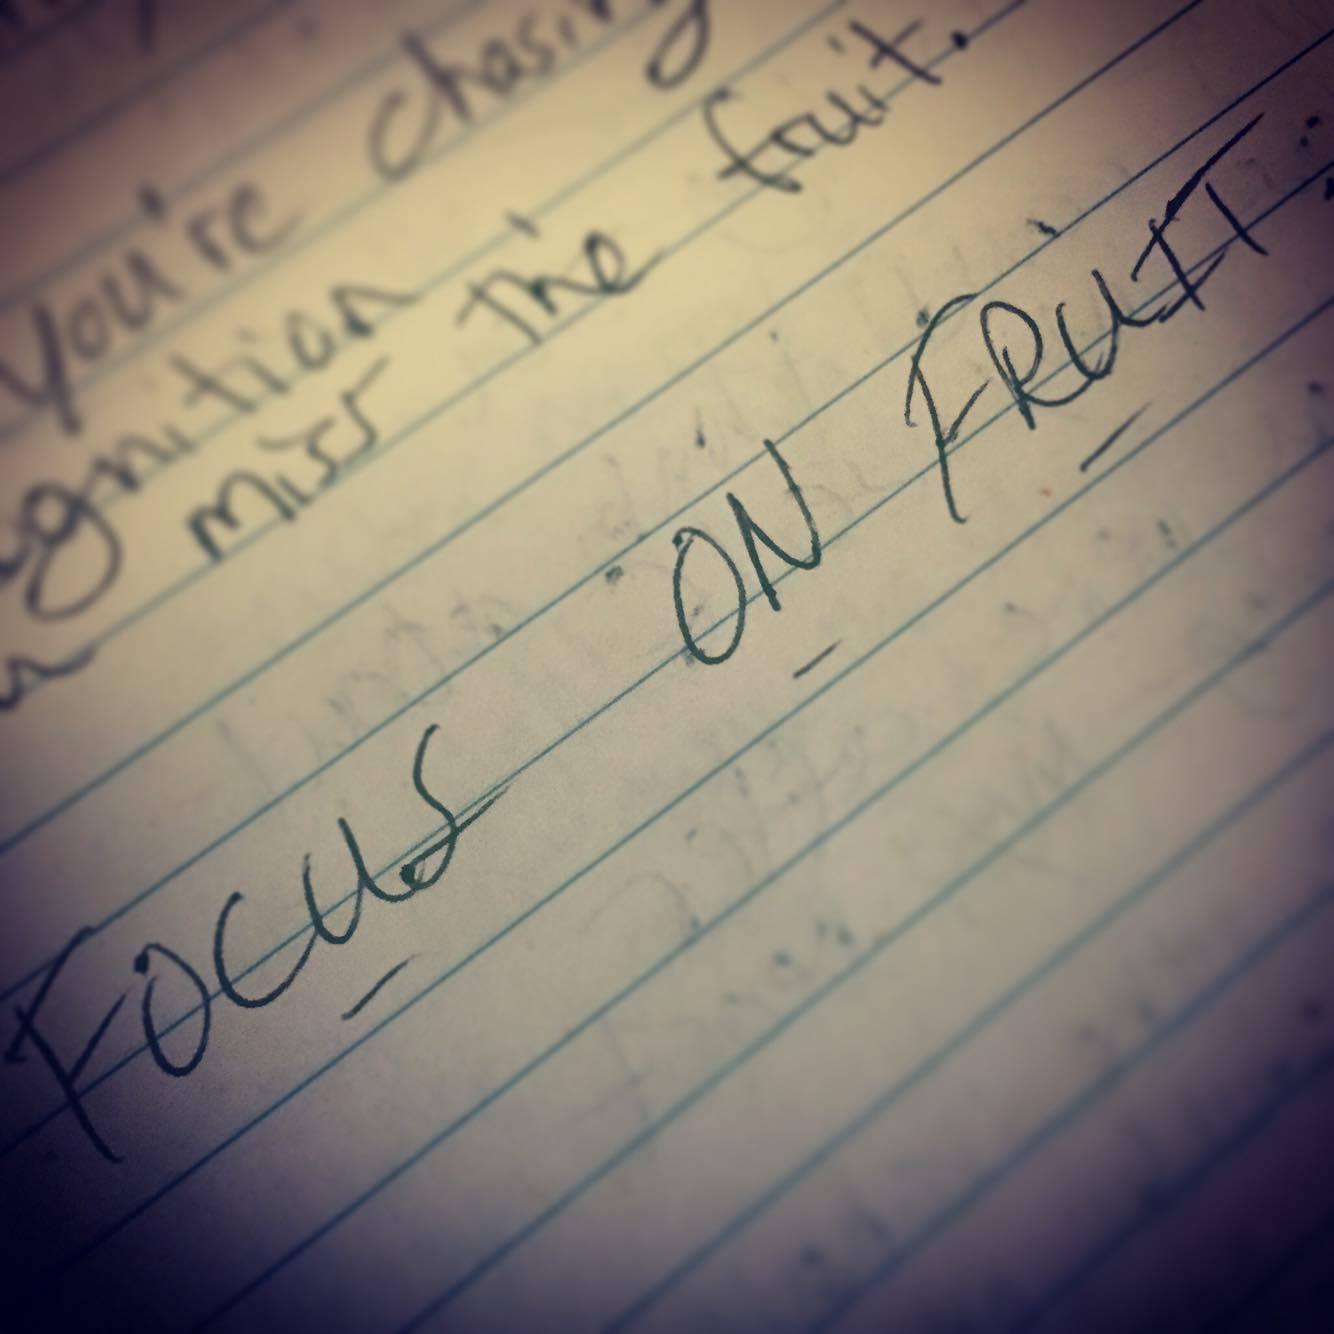 you're chasing
miss the fruit.
FOCUS ON FRUIT.